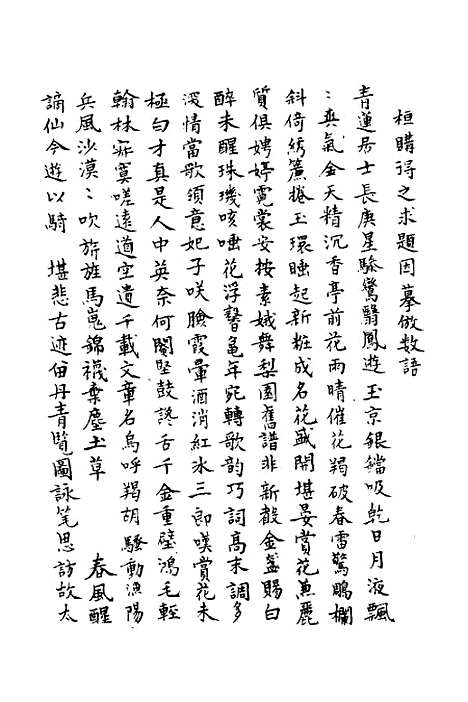 桓購得之求題因摹倣数語
青蓮居士長庚星驂鸞翳鳳遊玉京銀鐺吸乾日月液飄
〻爽氣金天精沉香亭前花雨晴催花羯破春雷驚鵰欄
斜倚綉簾捲玉環睡起新粧成名花盛開堪晏賞花蕉麗
質俱娉婷霓裳安按素娥舞梨園舊譜非新縠金盆賜白
醉未醒珠璣咳唾花浮謦龜年宛轉歌韵巧詞高末調多
深情當歌須意妃子咲臉霞暈酒消紅氷三郎嘆賞花未
極句才真是人中英奈何閹竪鼓諮舌千金重璧鴻毛輕
翰林寂寞嗟遠道空遺千載文章名烏呼羯胡騷動漁陽
兵風沙漠〻吹旂旌馬嵬錦襪棄塵土草　春風醒
謫仙今遊以騎　堪悲古迹留丹青覽圖詠笔思訪故太